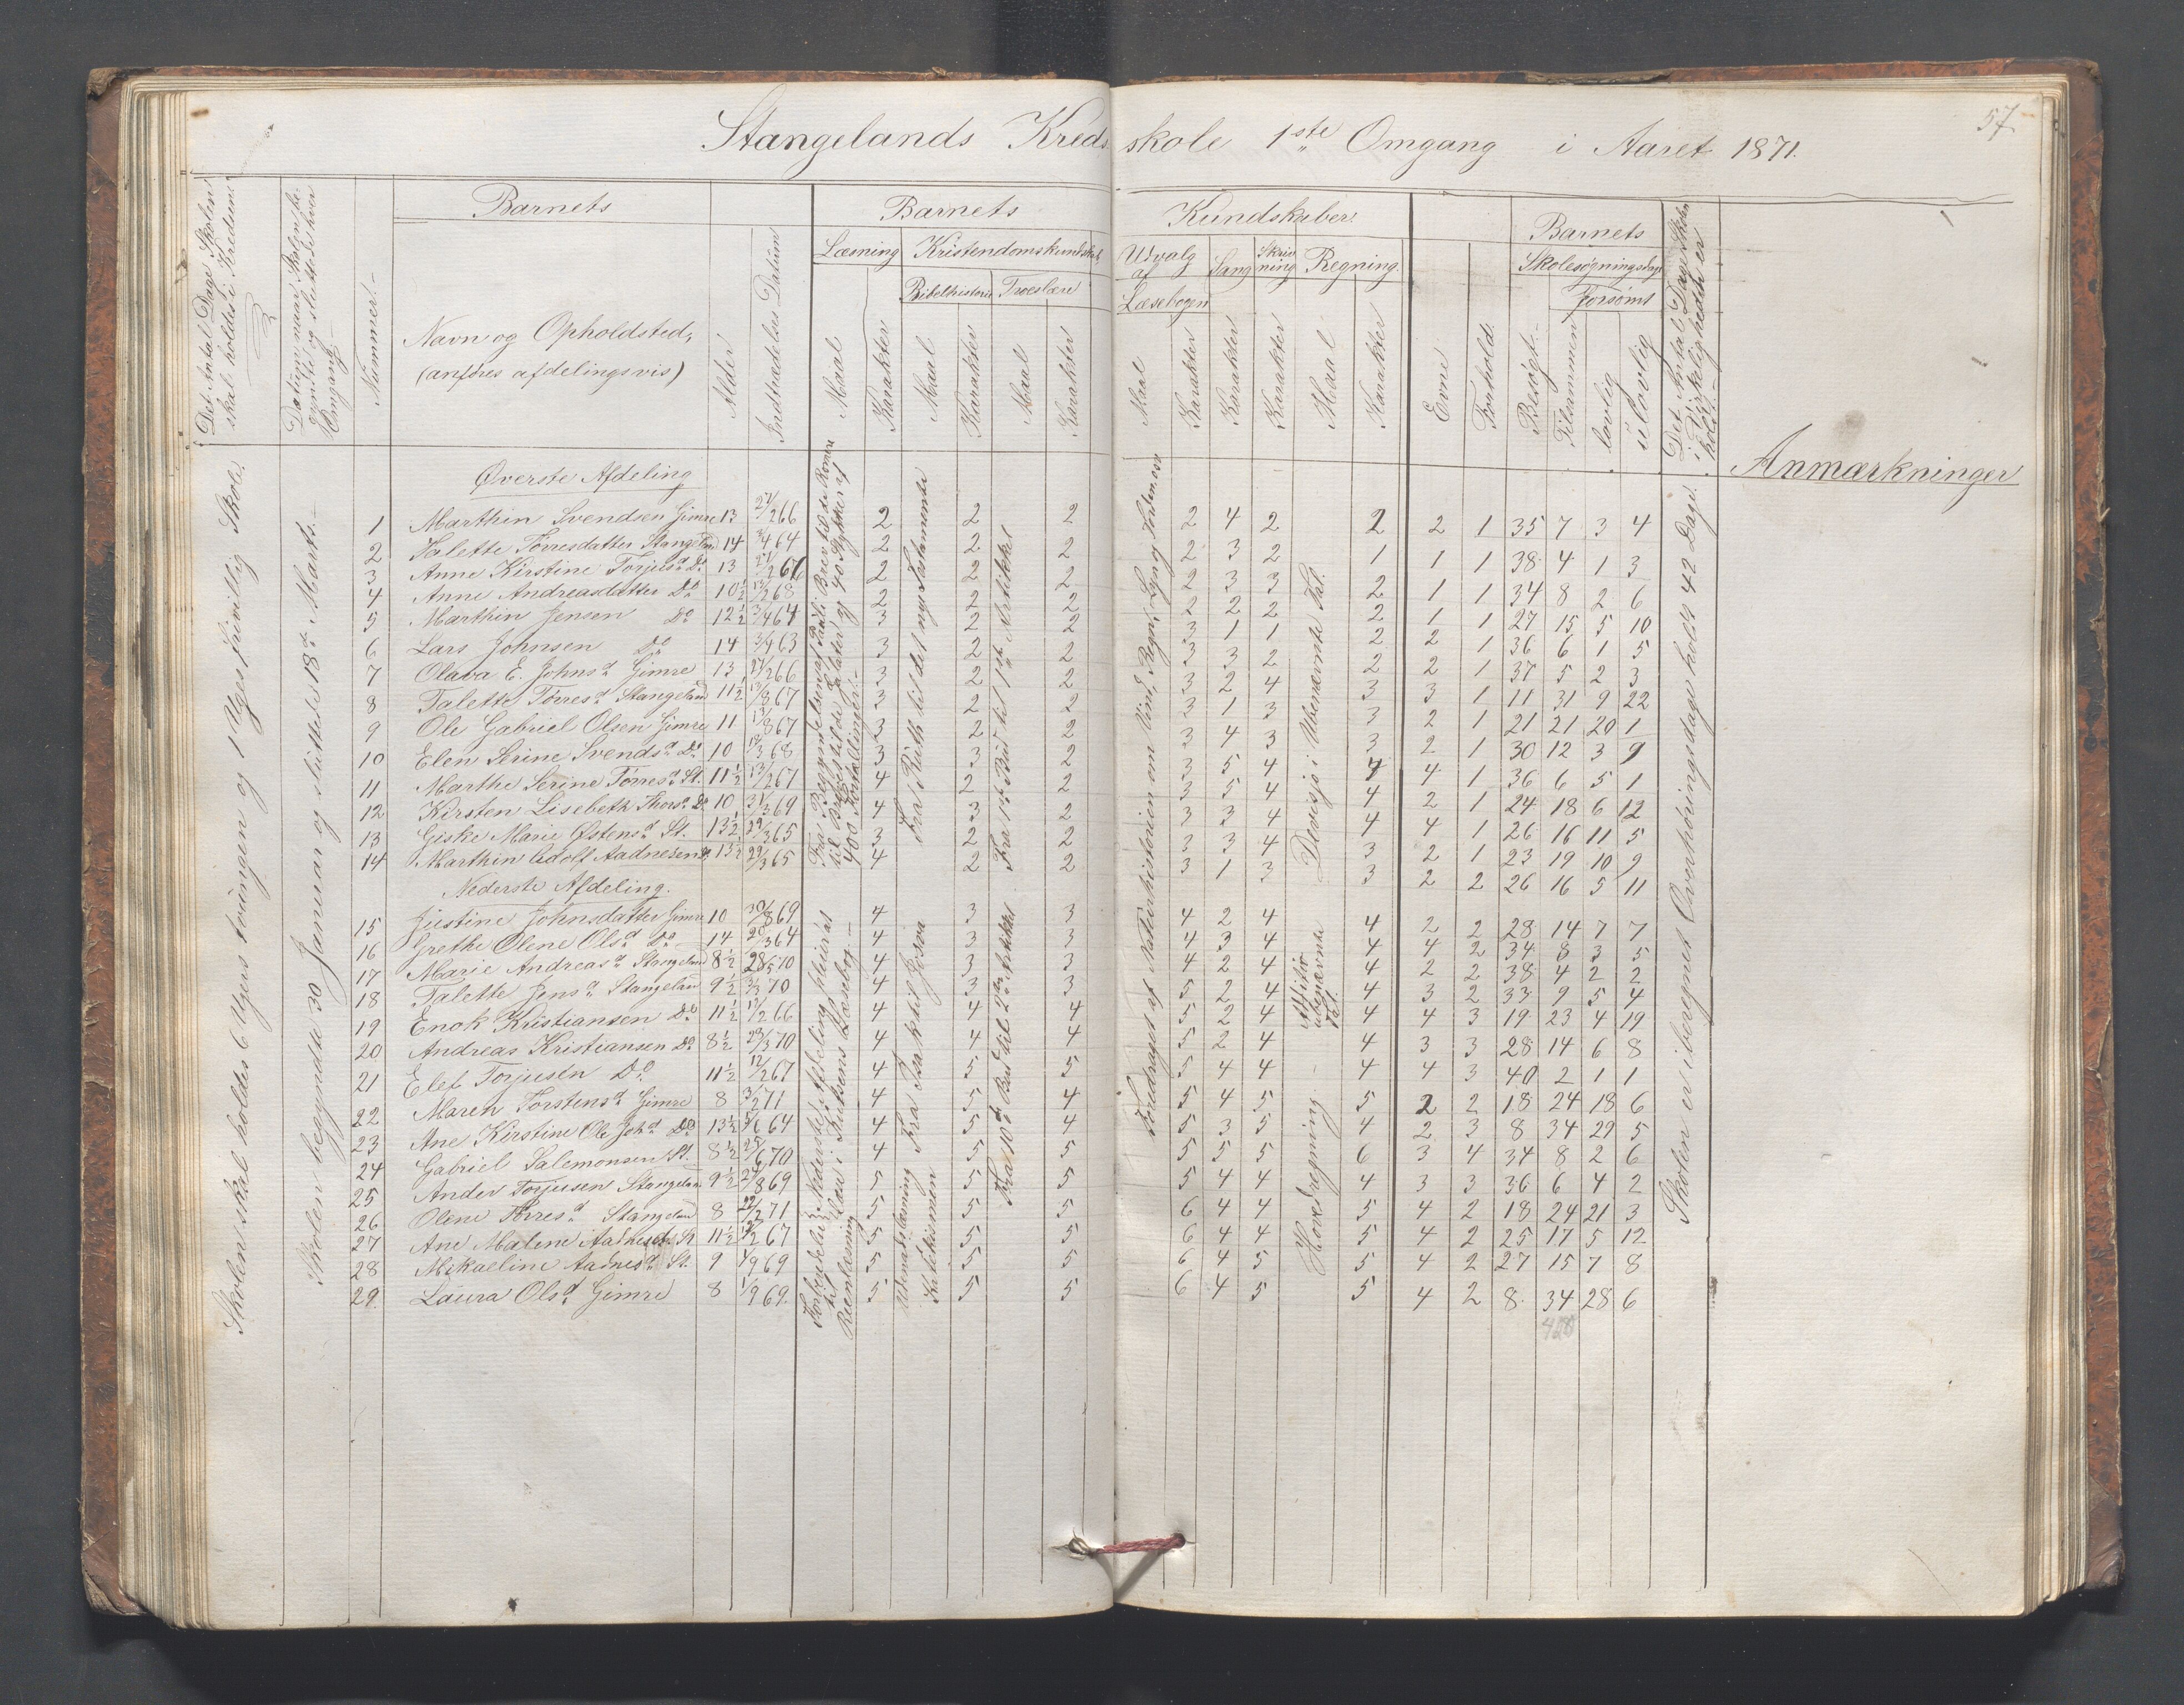 57.
Stangelands Kredsskole 1ste Omgang i Aaret 1871.
Det Antal Dage Skolen skal holdes i Kredsene
Datum, naar Skolen begyndte og sluttede hver Omgang
Nummer.
Barnets
Navn og Opholdsted,
(anføres afdelingsvis)
Alder
Indtrædelses Datum
Barnets Kundskaber.
Læsning
Maal
Karakter
Kristendomskundskab
Bibelhistorie
Maal
Karakter
Troeslære
Maal
Karakter
Udvalg af Læsebogen
Maal
Karakter
Sang
Karakter
Skrivning
Karakter
Regning.
Maal
Karakter
Evne
Forhold.
Barnets
Skolesøgningsdage
Besøgt
Forsømt
Tilsammen
lovlig
ulovlig
Det Antal Dage Skolen i Virkeligheden er holdt.
Anmærkninger
Skolen skal holdes 6 Uger tvungen og 1 Uges frivillig Skole.
Skolen begyndte 30 Januar og sluttede 18de Marts.
Øverste Afdeling
1 Marthin Svendsen Gimre 13 27/2 66 2 2 2 2 4 2 2 2 1 35 7 3 4
2 Talette Tørresdatter Stangeland 14 3/4 64 2 2 2 2 3 2 1 1 1 38 4 1 3
3 Anne Kirstine Torjusd. Do 13 27/2 66 2 2 2 2 3 3 2 1 1 34 8 2 6
4 Anne Andreasdatter Do 10½ 13/2 68 2 2 2 2 2 2 2 1 1 27 15 5 10
5 Marthin Jensen Do 12½ 3/4 64 3 2 2 3 1 1 2 2 1 36 6 1 5
6 Lars Johnsen Do 14 3/4 63 3 2 2 3 3 2 2 2 1 37 5 2 3
7 Olava E. Johnsd. Gimre 13 27/2 66 3 2 2 3 2 4 3 3 1 11 31 9 22
8 Talette Tørresd. Stangeland 11½ 13/8 67 3 2 2 3 1 3 3 2 1 21 21 20 1
9 Ole Gabriel Olsen Gimre 11 13/8 67 3 2 2 3 4 3 3 2 1 30 12 3 9
10 Elen Serine Svendsd. Do 10 68 3 3 2 3 5 4 4 4 1 36 6 5 1
11 Marthe Serine Tørresd. St. 11½ 13/2 67 4 2 2 3 5 4 4 2 1 24 18 6 12
12 Kirsten Lisebeth Thorsd. Do 10 31/3 69 4 3 2 3 3 4 4 4 1 26 16 11 5
13 Giske Marie Østensd. St. 13½ 29/3 65 3 2 2 3 3 4 3 2 1 23 19 10 9
14 Marthin Adolf Aadnesen 13½ 29/3 65 4 2 2 3 1 3 3 2 2 26 16 5 11
Nederste Afdeling.
15 Justine Johnsdatter Gimre 10 30/8 69 4 3 3 4 2 4 4 2 2 28 14 7 7
16 Grethe Oline Olsd. Do 14 20/3 64 4 3 3 4 3 4 4 4 2 34 8 3 5
17 Marie Andreasd. Stangeland 8½ 28/5 70 4 3 3 4 2 4 4 2 2 38 4 2 2
18 Talette Jensd. Stangeland 9½ 70 4 3 3 5 2 4 4 3 2 33 9 5 4
19 Enok Kristiansen Do 11½ 13/2 66 4 4 4 5 2 4 4 4 3 19 23 4 19
20 Andreas Kristiansen Do 8½ 29/3 70 4 4 4 5 2 4 4 3 3 28 14 6 8
21 Elef Torjusen Do 11½ 12/2 67 4 5 5 5 4 4 4 4 3 40 2 1 1
22 Maren Torstensd. Gimre 8 3/2 71 4 5 4 5 4 5 5 2 2 18 24 18 6
23 Ane Kirstine Ole Johd. Do 13½ 64 4 5 4 5 3 5 4 2 3 8 34 29 5
24 Gabriel Salemonsen St. 8½ 25/6 70 4 5 5 5 5 5 6 3 4 34 8 2 6
25 Ander Torjusen Stangeland 9½ 24/8 69 5 5 5 5 4 4 4 3 3 36 6 4 2
26 Oline Tørresd. Stangeland 8 71 5 5 5 6 4 4 5 4 2 18 24 21 3
27 Ane Malene Aadnesd. St 11½ 67 5 5 5 6 4 4 5 4 2 25 17 5 12
28 Mikaeline Aadnesd. St. 9 1/9 69 5 5 5 6 4 5 5 4 2 27 15 7 8
29. Laura Olsd. Gimre 8 1/9 69. 5 5 5 6 4 5 5 4 2 8 34 28 6
Fra Begyndelsen af Pauli Brev til de Romere til Brevet til de Galater og 40 Stykker af 400 Fortællinger.
Fra Ruth til det nye Testamente
Fra 1ste Bud til 1ste Artikkel
Foredraget af Naturhistorien om Vind, Regn, Lyn og Torden osv
Devisjo i Ubenævnte Tal.
Læst i Knudsens Læsebog
Renlæsning
Fra Isak til Josva
Udenadslæsning
Katekismen
Fra 10de Bud til 2den Artikkel
Aditio ubenævnte Tal.
Hovedregning
Skolen er iberegnet Overhøringsdage holdt 42 Dage.